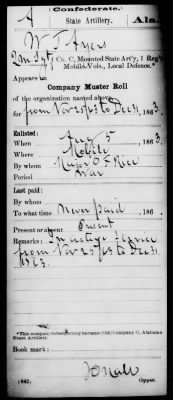 (Confederate.)
A State Artillery. Ala.
W T Ayers
Co. C, Mounted State Art'y, 1 Reg't
Mobile Vols., Local Defence.*
Appears on
Company Muster Roll
of the organization named above,
for from Nov 25th to Dec 31, 1863.
Enlisted:
When Aug 5, 1863.
Where Mobile
By whom Major O F Rice
Period War
Last paid:
By whom
To what time Never paid, 186 .
Present or absent Present
Remarks: In active service
from Nov 25th to Dec 31
1863.
*This company subsequently became (2d) Company C, Alabama
State Artillery.
Book mark:
(642)
Copyist.